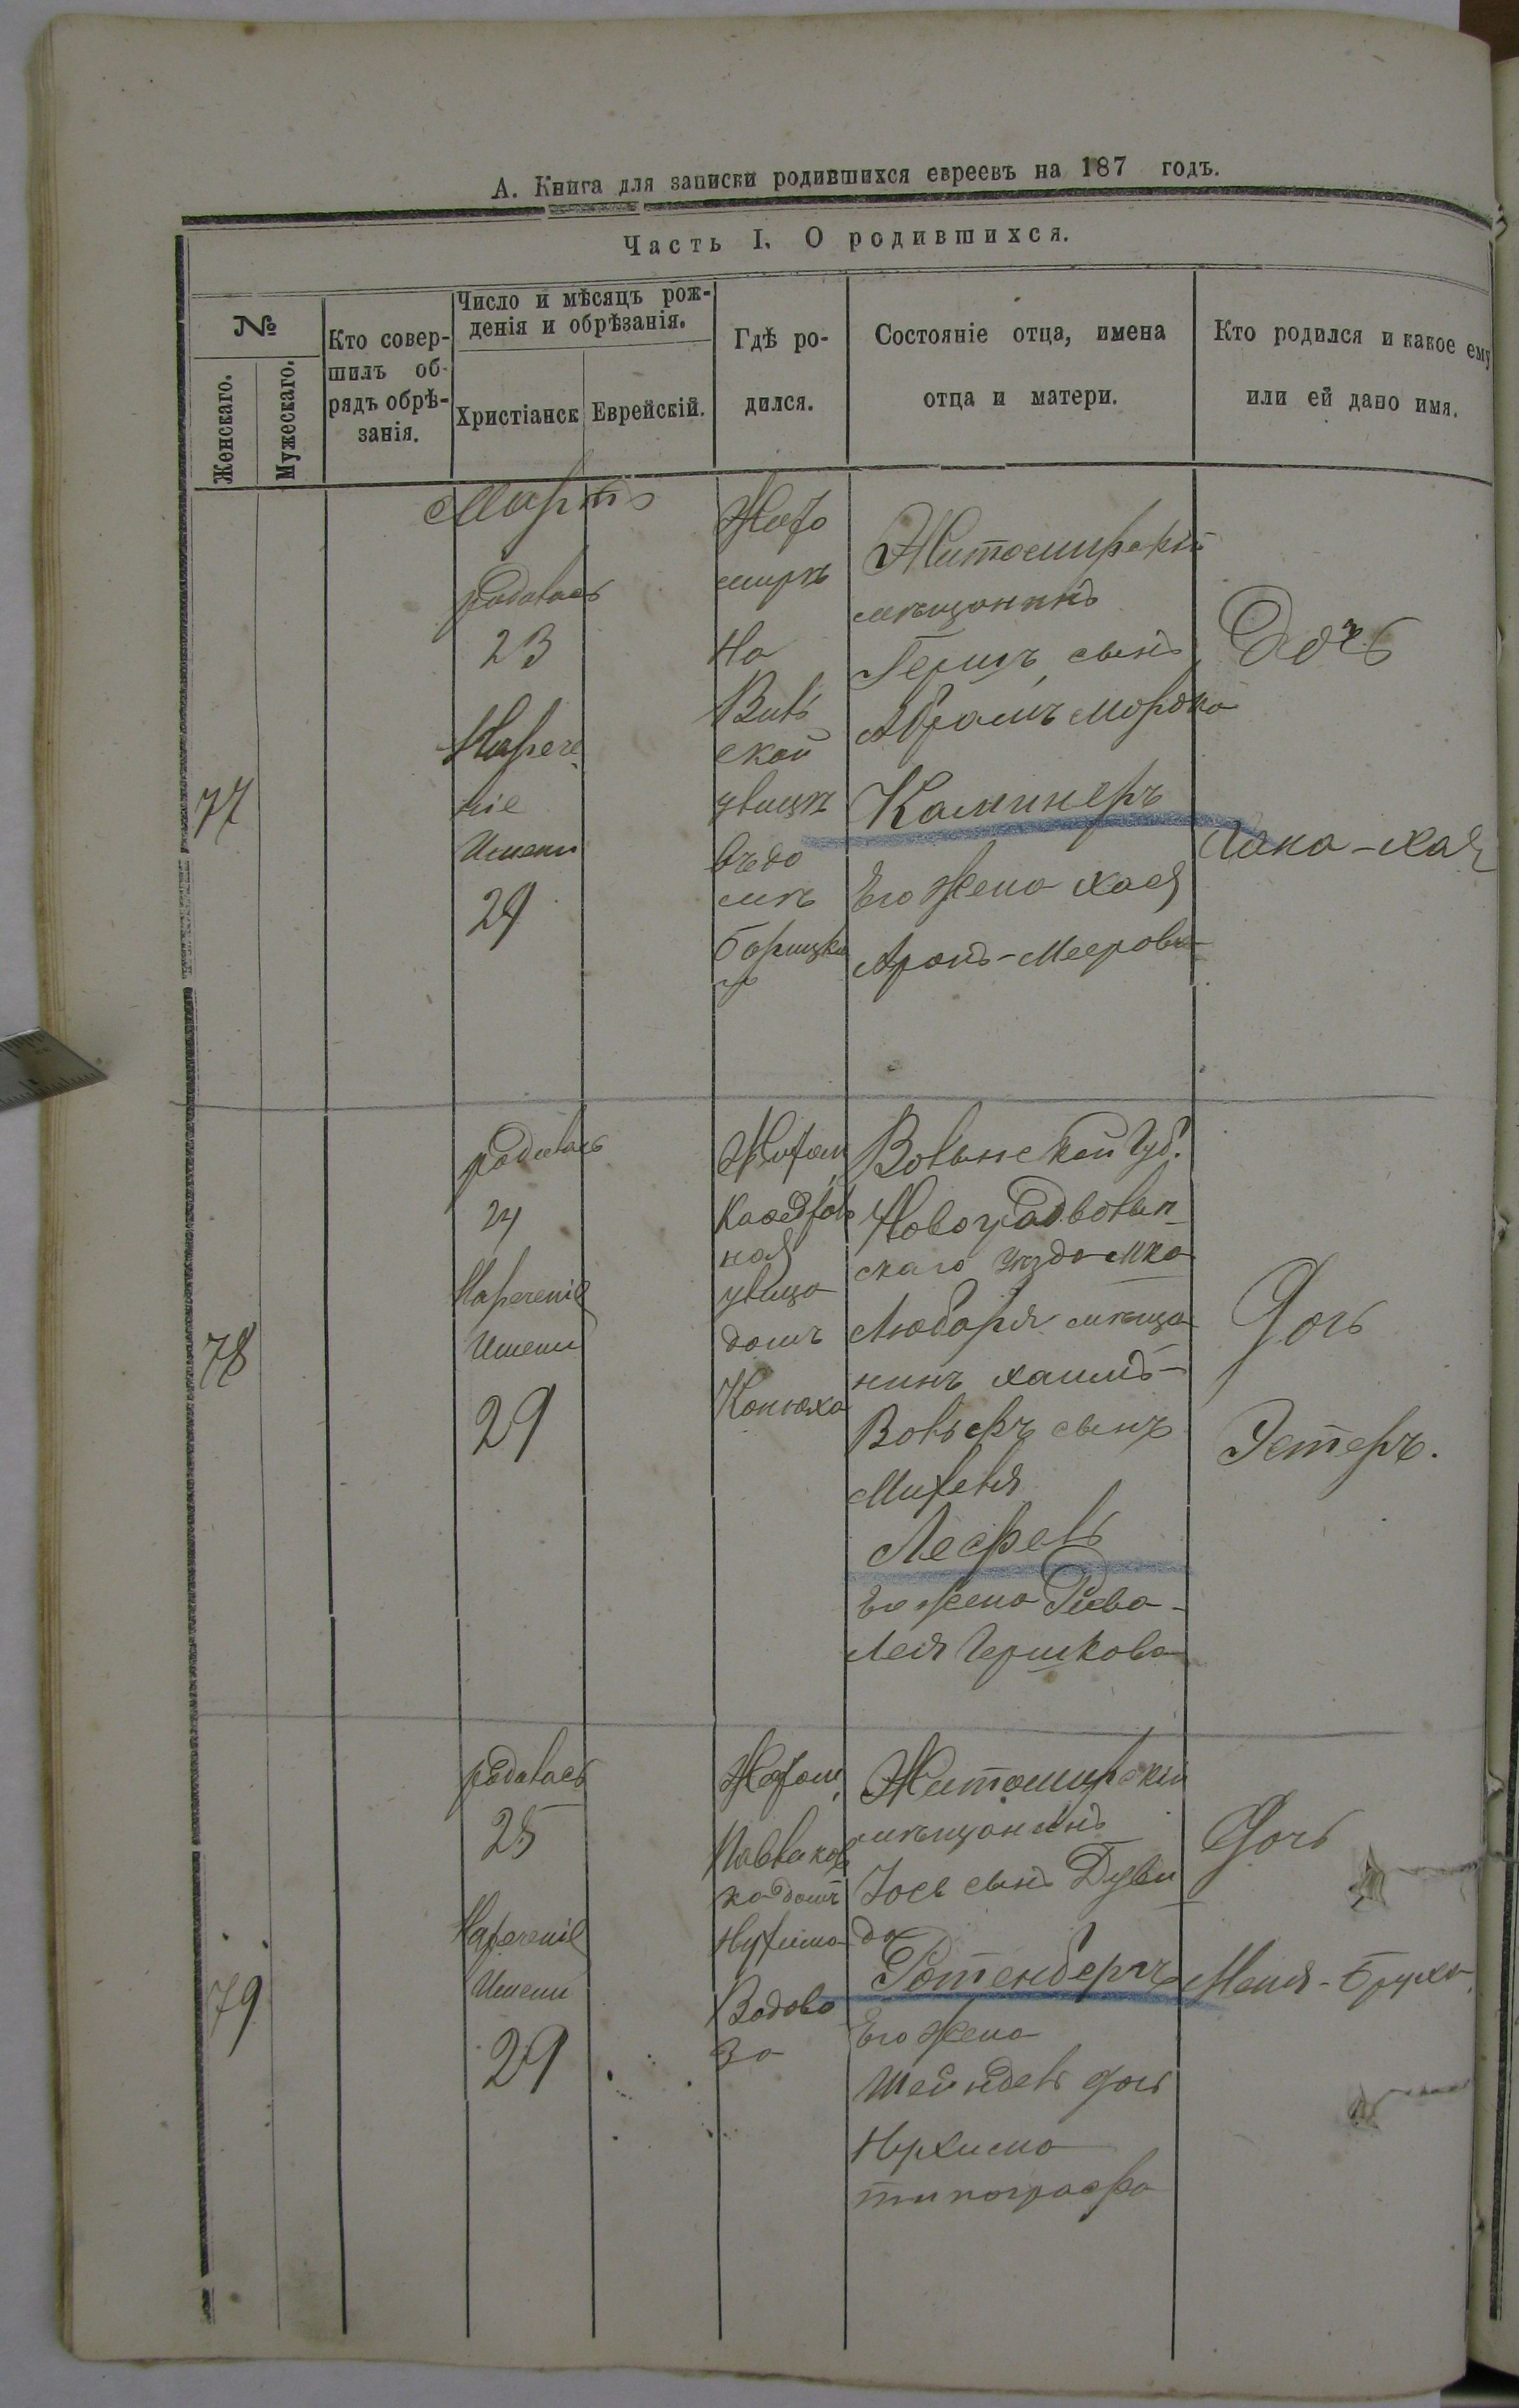 А. Книга для записки родившихся евреевъ на 187 годъ.
Часть I. О родившихся.
№
Женскаго.
Мужескаго.
Кто совер-
шилъ об-
рядъ обрѣ-
занія.
Число и мѣсяцъ рож-
денія и обрѣзанія.
Христіанск
Еврейскій.
Гдѣ ро-
дился.
Состояніе отца, имена
отца и матери.
Кто родился и какое ему
или ей дано имя.
Мартъ
77
родилась
23
Нарече
ніе
Имени
29
Жито
мирѣ
На
Виль
ской
улицѣ
въ до
мѣ
Житомирскій
мѣщанинъ
Гершъ сынъ
Абрамъ Мордко
Каминеръ
Его жена Хася
Аронъ-Меерова
Дочь
Хана-Хая
78
родилась
24
Нареченіе
Имени
29
Житом
Каѳедраль
ная
улица
домъ
Конюха
Волынской Губ.
Новоградволын
скаго уѣзда мка
Любара мѣща
нинъ Хаимъ-
Вольфъ сынъ
Михеля
Его жена Рива-
Лея Гершкова
Дочь
Эстеръ.
79
родилась
25
Нареченіе
Имени
29
Житом,
ка домъ
Нухима
Водово
за
Житомирскій
мѣщанинъ
Іось сынъ Дуви
да
Ротенбергъ
Его жена
Шейндель дочь
Нухима
типографа
Дочь
Маня-Бруха